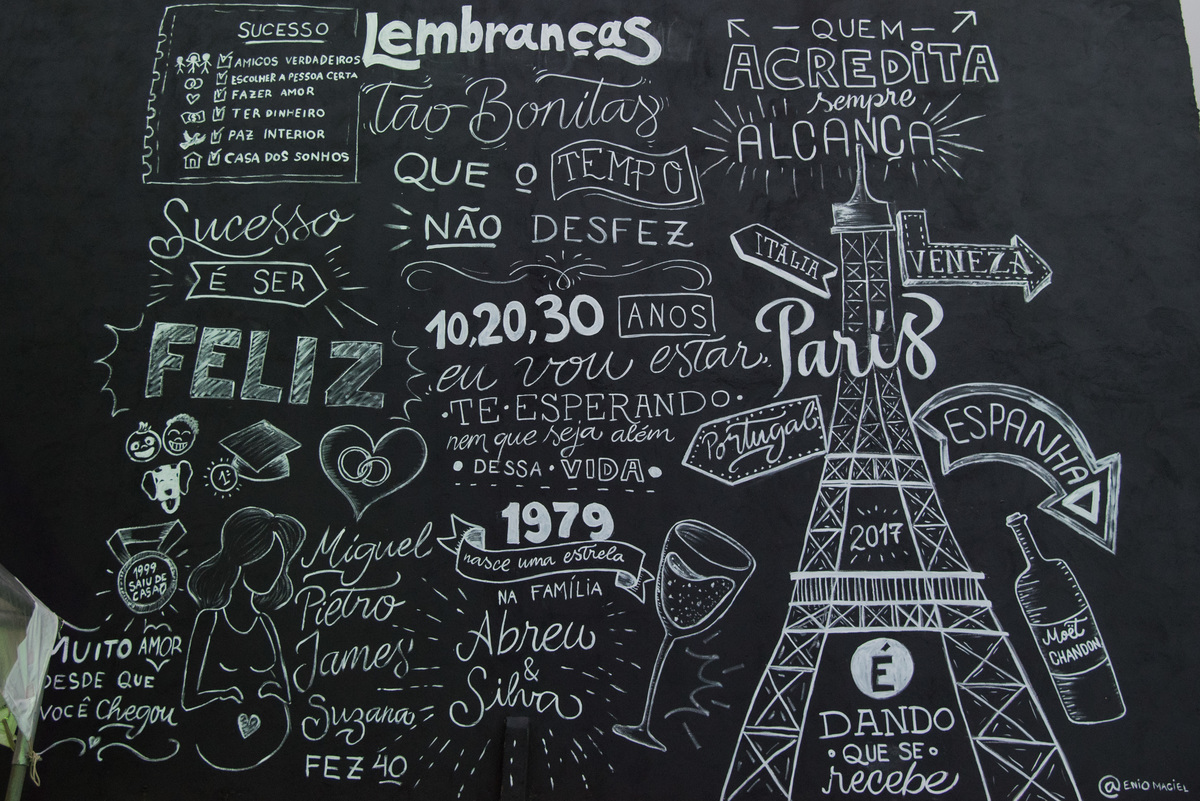 SUCESSO
AMIGOS VERDADEIROS
ESCOLHER A PESSOA CERTA
FAZER AMOR
TER DINHEIRO
PAZ INTERIOR
CASA DOS SONHOS
Sucesso
É SER
FELIZ
1º
1999
SAIU DE
CASA
MUITO AMOR
DESDE QUE
VOCÊ Chegou
Miguel
Pietro
James
Suzana
FEZ 40
Lembranças
Tão Bonitas
QUE O TEMPO
NÃO DESFEZ
10,20,30 ANOS
eu vou estar
·TE·ESPERANDO·
nem que seja além
•DESSA·VIDA•
1979
nasce uma estrela
NA FAMÍLIA
Abreu
&
Silva
— QUEM —
ACREDITA
sempre
ALCANÇA
ITÁLIA
VENEZA
Paris
Portugal
ESPANHA
2017
Moët
CHANDON
É
DANDO
QUE SE
recebe
@ENIO MACIEL